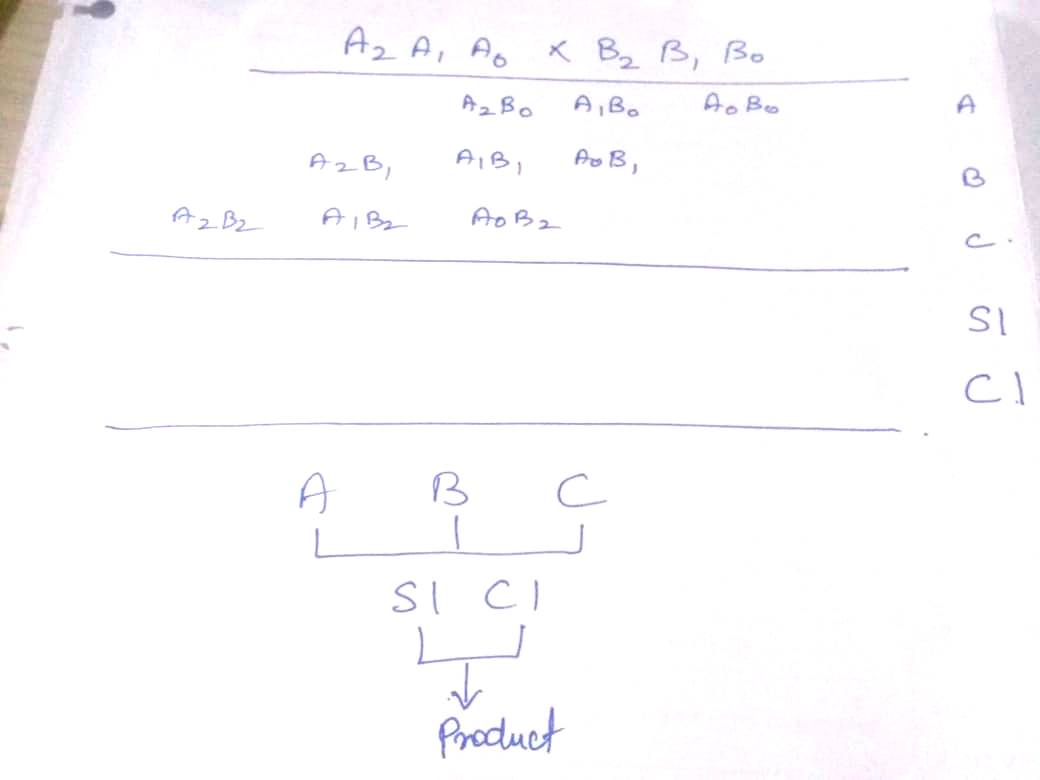 A2 A1 A0 x B2 B1 B0
A2B0 A1B0 A0B0 A
A2B1 A1B1 A0B1 B
A2B2 A1B2 A0B2 C.
S1
C1
A B C
S1 C1
Product